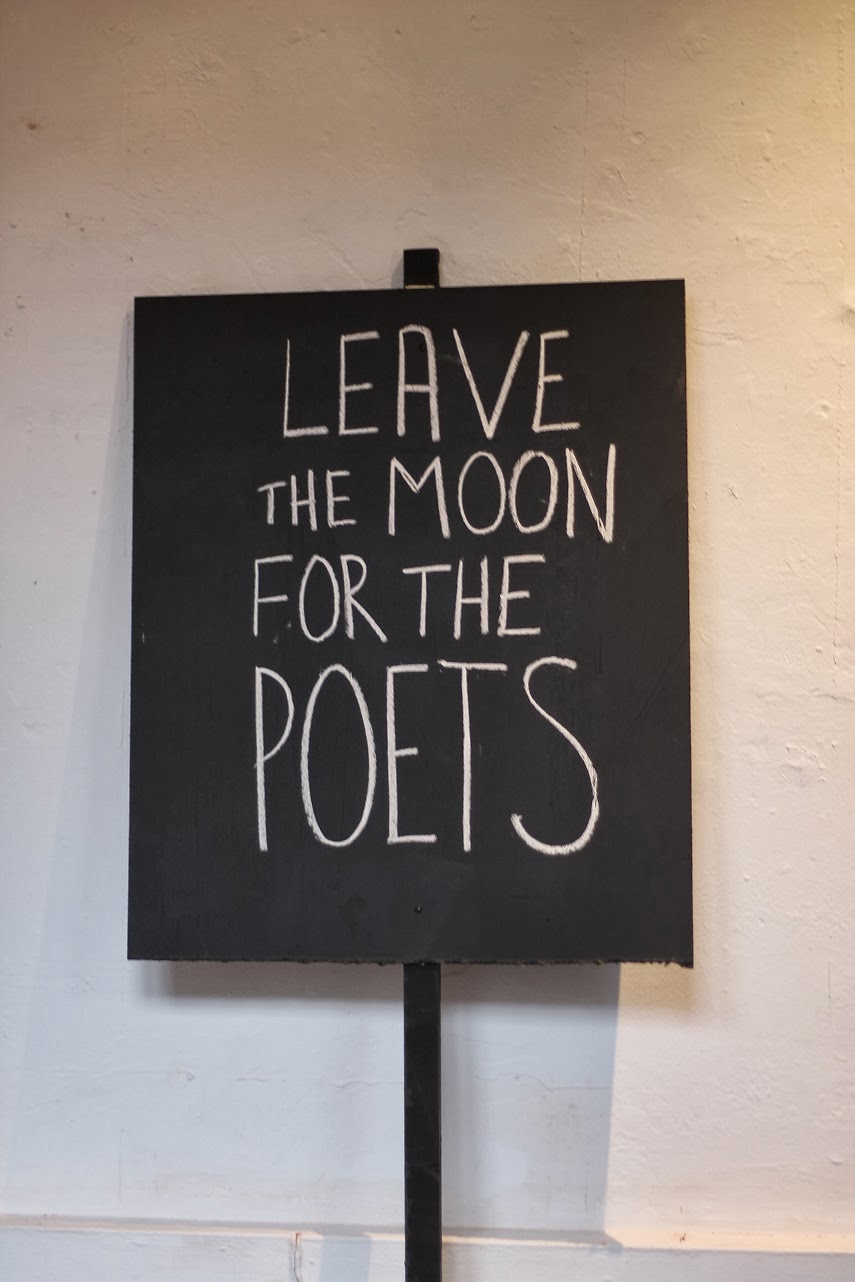 LEAVE
THE MOON
FOR THE
POETS